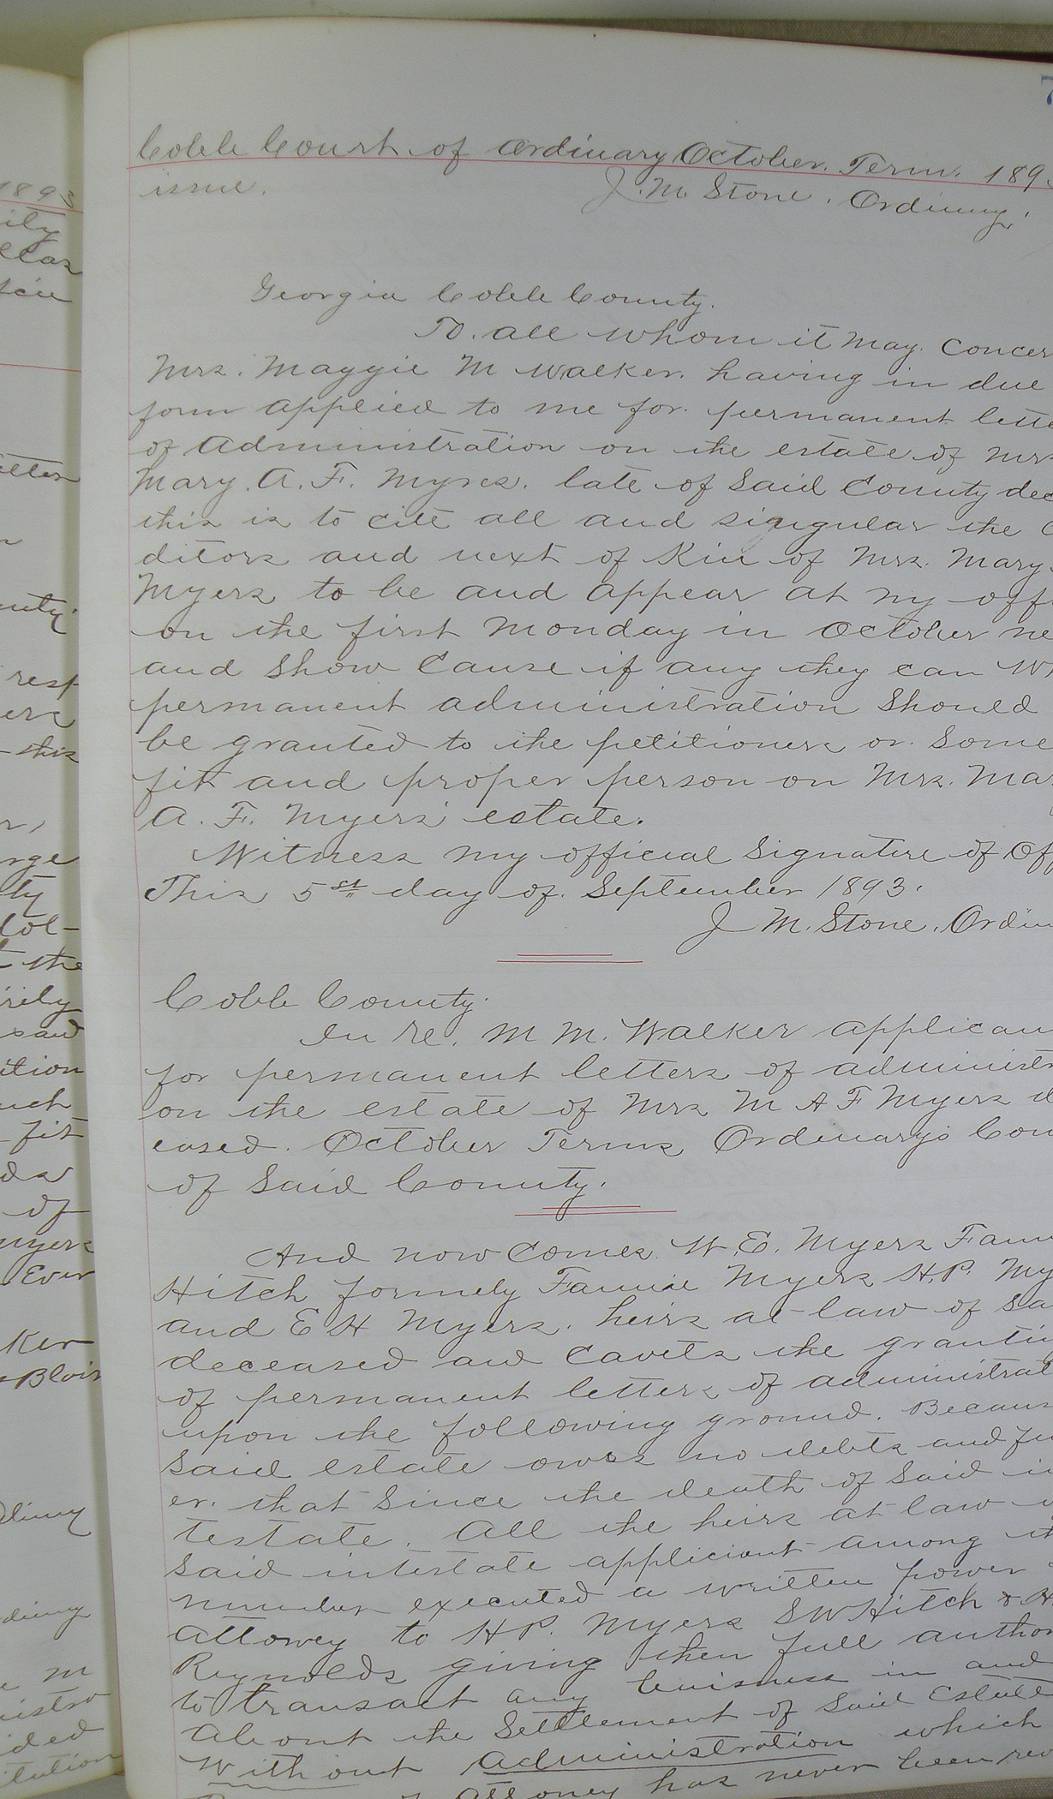 7
Cobb Court of Ordinary October. Term. 189
issue. J. M. Stone. Ordinary.
Georgia Cobb County.
To. all whom it may. Concer
Mrs. Maggie M Walker. having in due
form applied to me for permanent lette
of Administration on the estate of Mrs
Mary. A. F. Myres. late of Said County dec
this is to cite all and singular the C
ditors and next of Kin of Mrs. Mary
Myers to be and appear at my off
on the first Monday in October ne
and Show Cause if any they can W
permanent administration Should
be granted to the petitioners or Some
fit and proper person on Mrs. Mar
A. F. Myers' estate.
Witness my official Signature of Off
This 5st day of. September 1893.
J M. Stone. Ordin
Cobb County.
In re. M M. Walker applican
for permanent letters of administr
on the estate of Mrs M A F Myers d
eased. October Terms Ordinary's Cou
of Said County.
And now Comes. W. E. Myers Fann
Hitch formely Fannie Myers H.P. My
and E H Myers. heirs at law of Sa
deceased and Cavets the grantin
of permanent letters of administrat
upon the following ground. Becaus
Said estate owes no debts and fu
er. that Since the death of Said in
testate. All the heirs at law
Said intestate appliciant among th
number executed a written power
attorney to H P. Myers S W Hitch &
Reynolds giving then full author
to transact any buisness in and
about the Settlement of Said Estate
Without Administration which
Attorney has never been rev
1893
ily
this
rge
ty
Col-
the
rily
ition
uch
fit
of
Myers
Ever
Ker
M
ided
itution